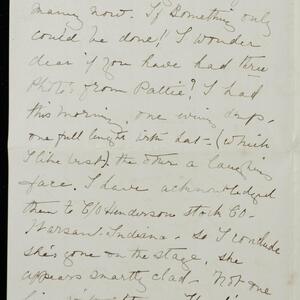 many now. If Something only
could be done! I wonder
dear if you have had three
Photos from Pattie? I had
this morning, one
one full length with hat - (which
I like best), the other a laughing
face. I have acknowledged
them to C/O Henderson Stock CO -
Warsaw. Indiana - so I conclude
she's gone on the stage, she
appears smartly clad - Not one